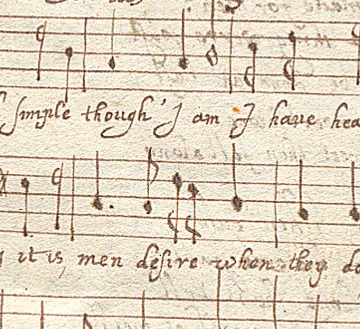 simple though I am I have hea
it is men desire when they do